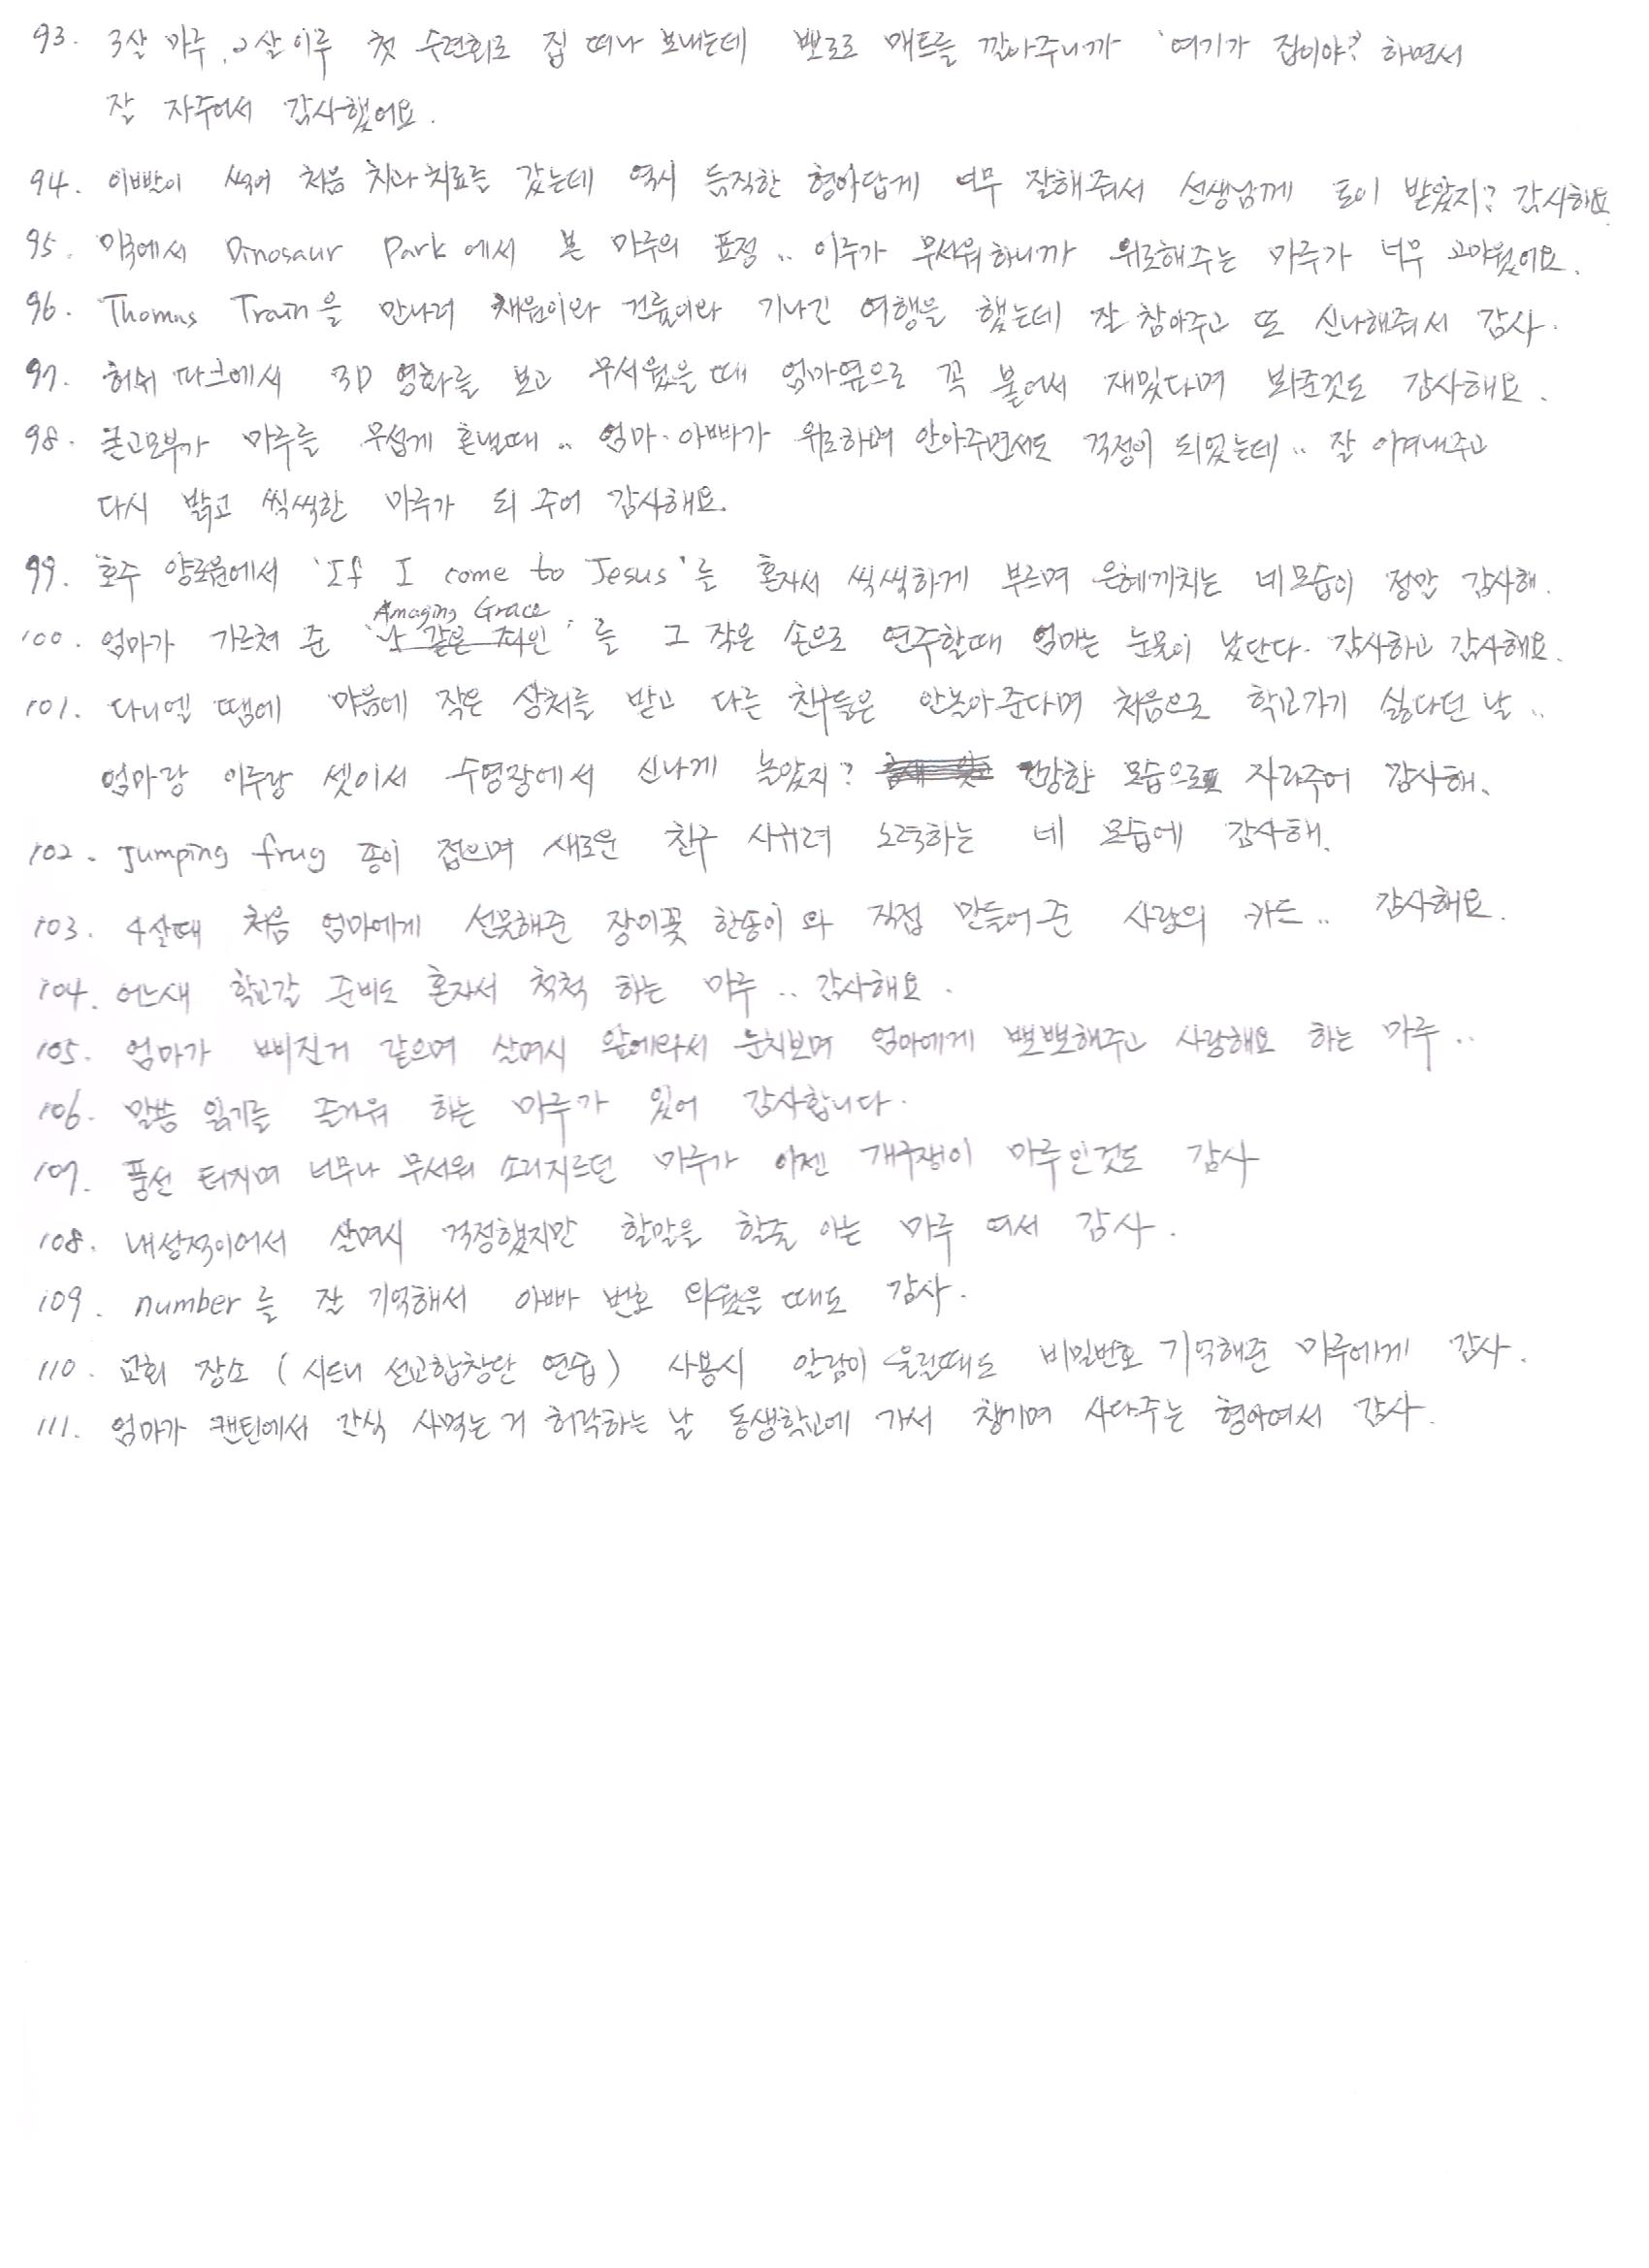 93. 3살 마루, 2살 이루 첫 수련회로 집 떠나 보내는데 뽀로로 매트를 깔아주니까 '여기가 집이야?' 하면서
잘 자주어서 감사했어요.
94. 이빨이 썩어 처음 치과치료를 갔는데 역시 듬직한 형아답게 너무 잘해줘서 선생님께 토이 받았지? 감사해요.
95. 미국에서 Dinosaur Park에서 본 마루의 표정.. 이루가 무서워하니까 위로해주는 마루가 너무 고마웠어요.
96. Thomas Train을 만나러 채원이와 건률이와 기나긴 여행을 했는데 잘 참아주고 또 신나해줘서 감사.
97. 허쉬 파크에서 3D 영화를 보고 무서웠을 때 엄마옆으로 꼭 붙어서 재밌다며 봐준것도 감사해요.
98. 큰고모부가 마루를 무섭게 혼낼때.. 엄마·아빠가 위로하며 안아주면서도 걱정이 되었는데.. 잘 이겨내주고
다시 밝고 씩씩한 마루가 되 주어 감사해요.
99. 호주 양로원에서 'If I come to Jesus'를 혼자서 씩씩하게 부르며 은혜끼치는 네모습이 정말 감사해.
100. 엄마가 가르쳐 준 'Amazing Grace'를 그 작은 손으로 연주할때 엄마는 눈물이 났단다. 감사하고 감사해요.
101. 다니엘 땜에 마음에 작은 상처를 받고 다른 친구들은 안놀아준다며 처음으로 학교가기 싫다던 날..
엄마랑 이루랑 셋이서 수영장에서 신나게 놀았지? 건강한 모습으로 자라주어 감사해.
102. Jumping frug 종이 접으며 새로운 친구 사귀려 노력하는 네 모습에 감사해.
103. 4살때 처음 엄마에게 선물해준 장미꽃 한송이와 직접 만들어준 사랑의 카드.. 감사해요.
104. 어느새 학교갈 준비도 혼자서 척척 하는 마루.. 감사해요.
105. 엄마가 삐진거 같으며 살며시 옆에와서 눈치보며 엄마에게 뽀뽀해주고 사랑해요 하는 마루..
106. 말씀 읽기를 즐거워 하는 마루가 있어 감사합니다.
107. 풍선 터지며 너무나 무서워 소리지르던 마루가 이젠 개구쟁이 마루인것도 감사
108. 내성적이어서 살며시 걱정했지만 할말을 할줄 아는 마루 여서 감사.
109. number를 잘 기억해서 아빠 번호 외웠을 때도 감사.
110. 교회 장소 (시드니 선교합창단 연습) 사용시 알람이 울릴때도 비밀번호 기억해준 마루에게 감사.
111. 엄마가 캔틴에서 간식 사먹는 거 허락하는 날 동생학교에 가서 챙기며 사다주는 형아여서 감사.